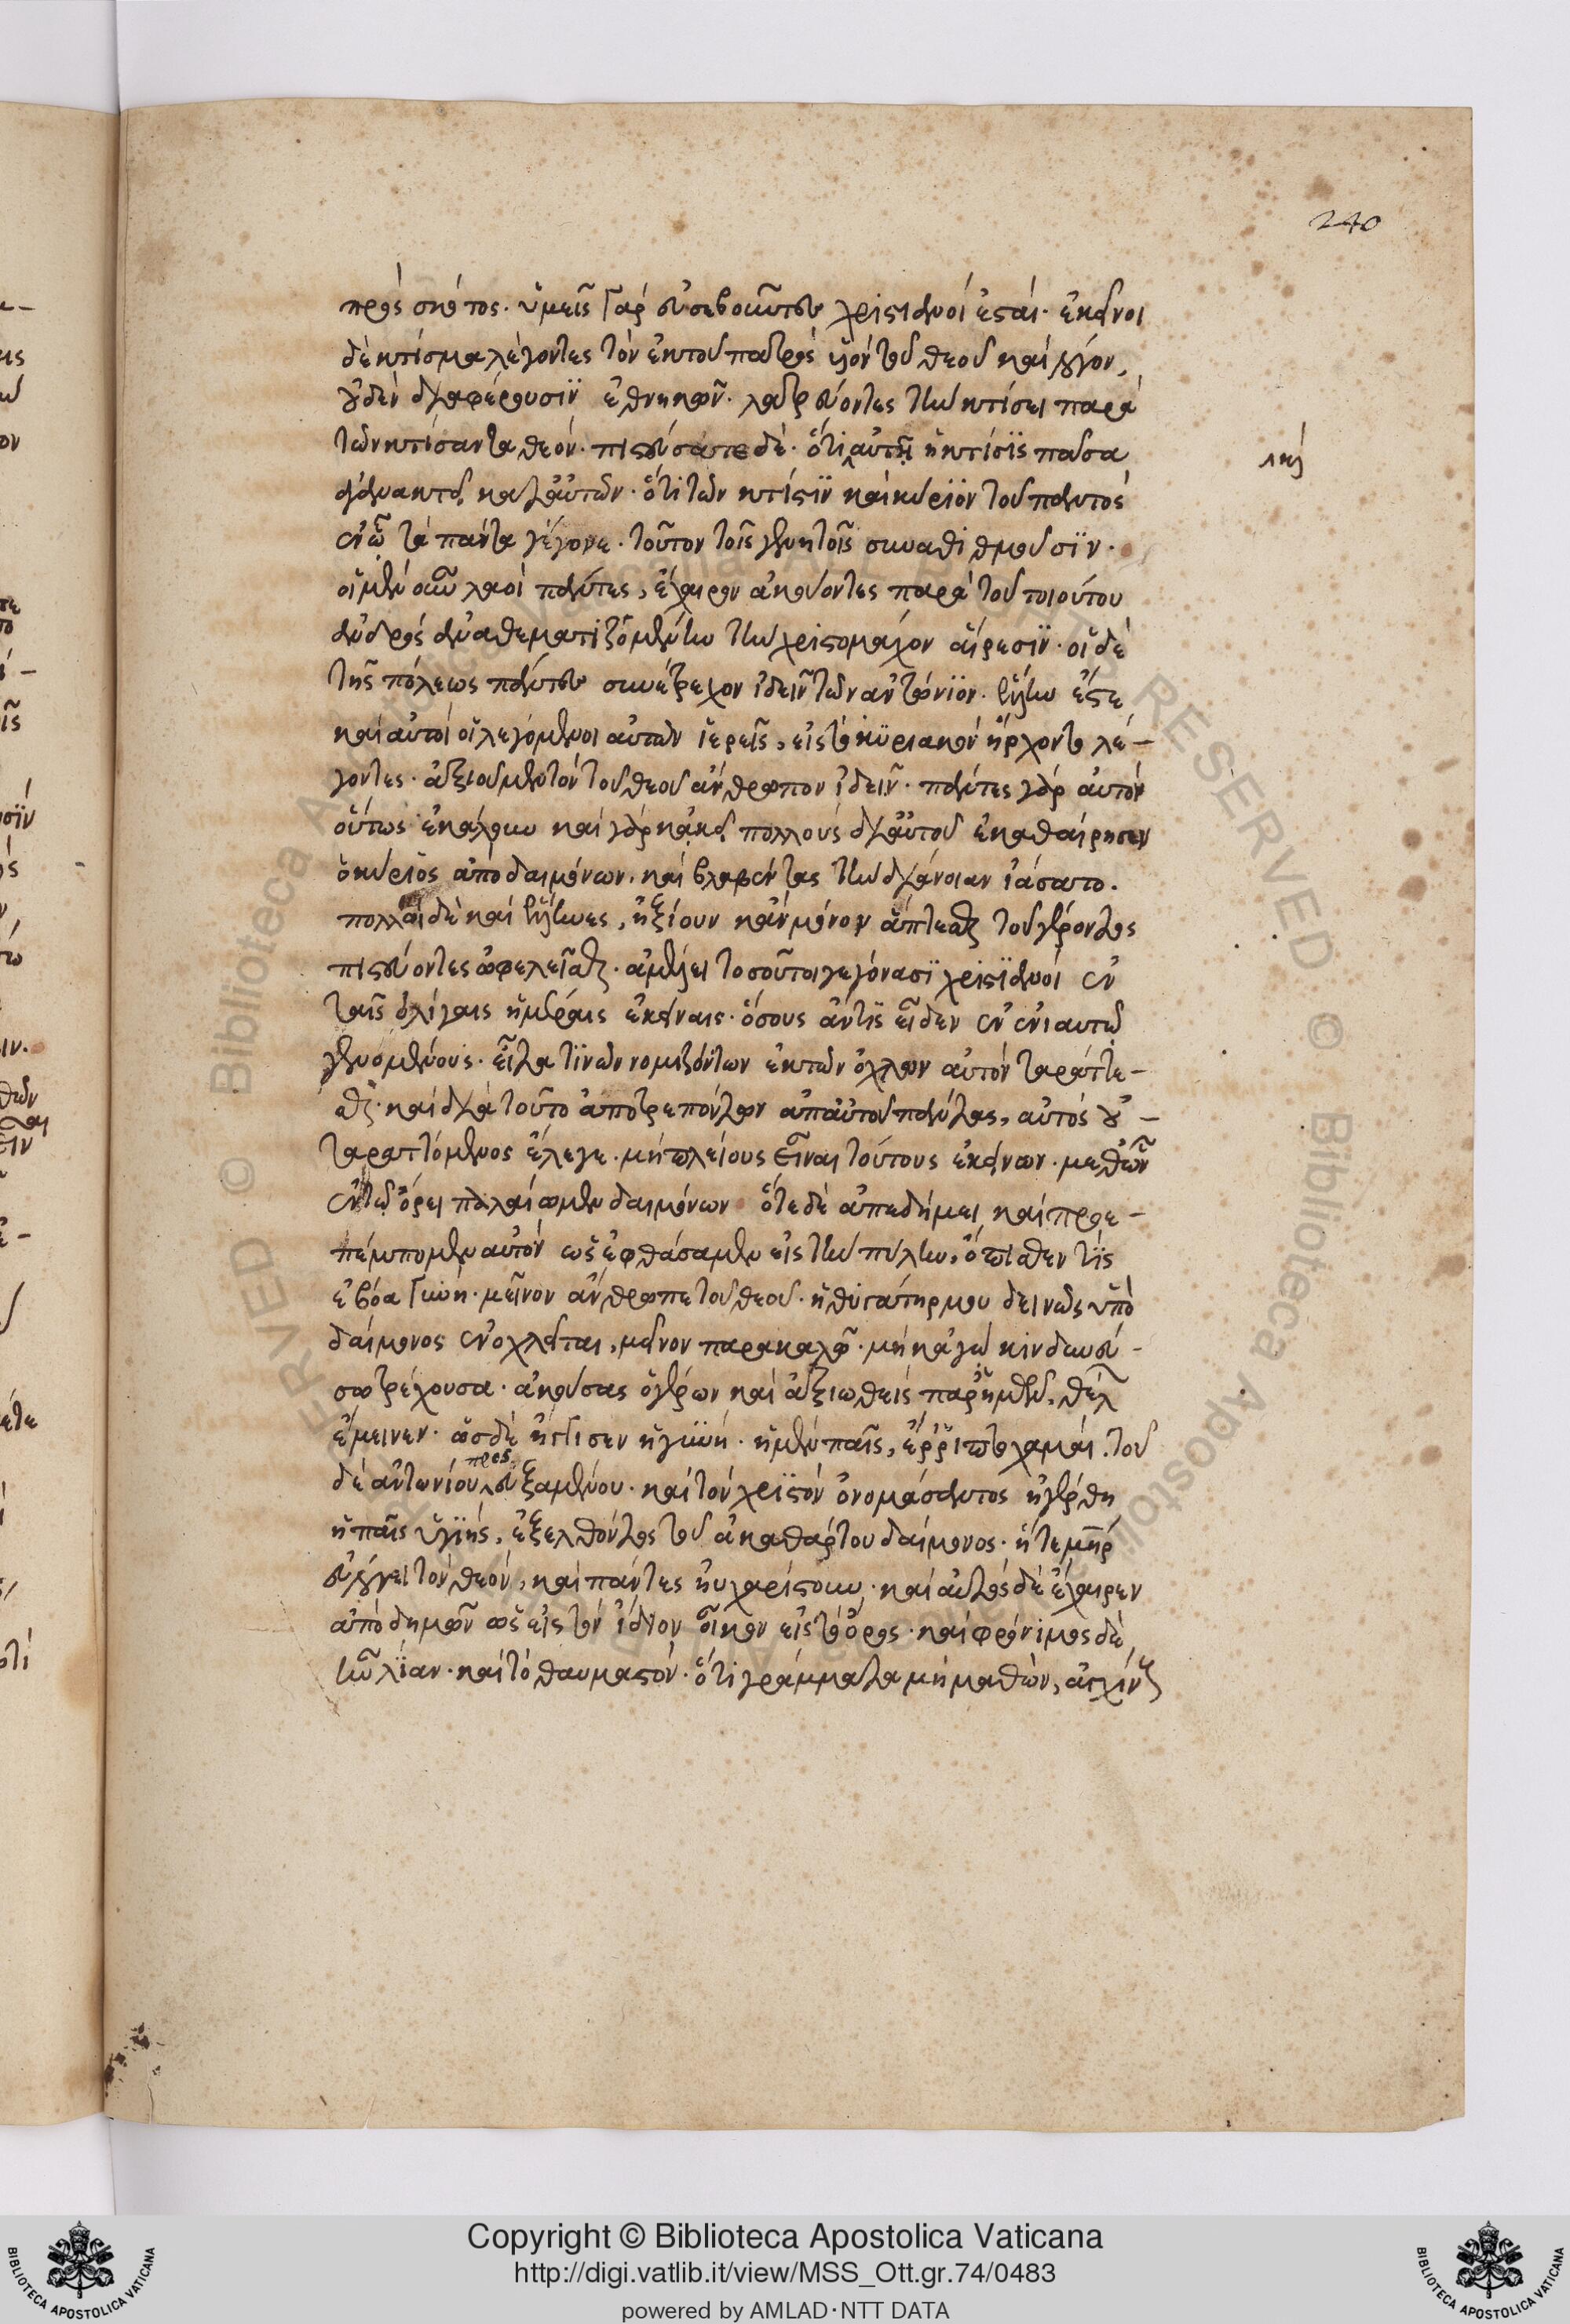 240
πρὸς σκότος. ὑμεῖς γὰρ εὐσεβοῦντες χριστιανοί ἐσταί. ἐκεῖνοι
δὲ κτίσμα λέγοντες τὸν ἐκ τοῦ πατρὸς υἱὸν τοῦ θεοῦ καὶ λόγον,
οὐδὲν διαφέρουσϊν ἐθνηκῶν. λατρεύοντες τὴν κτίσει παρὰ
τὼν κτίσαντα θεόν. πιστεύσατε δὲ. ὅτι αὐτῆ ἡ κτίσϊς πᾶσα
ἀγανακτεῖ κατ αὐτῶν. ὅτι τὼν κτίστϊν καὶ κύριϊον τοῦ παντὸς
ἐν ᾧ τὰ πάντα γέγονε. τοῦτον τοῖς γενητοῖς συναθιθμοῦσϊν.
οἱ μὲν οὖν λαοὶ πάντες, ἔχαιρον ἀκούοντες παρὰ τοῦ τοιούτου
ἀνδρὸς ἀναθεματιζομένην τὴν χριστομάχον αἵρεσϊν. οἱ δὲ
τῆς πόλεως πάντες συνέτρεχον ἰδεῖν τὼν ἀντώνϊον. ἕλλην ἐς τε
καὶ αὐτοὶ οἱ λεγόμενοι αὐτῶν ἱερεῖς, εἰς τὸ κϋριακὸν ἤρχοντο λέ-
γοντες. ἀξιοῦμεν τὸν τοῦ θεοῦ ἄνθρωπον ἰδεῖν. πάντες γὰρ αὐτὸν
οὕτως ἐκάλουν καὶ γὰρ κἀκεῖ πολλοὺς δι αὐτοῦ ἐκαθαίρησεν
ὁ κύριος ἀπὸ δαιμόνων. καὶ βλαβέντας τὴν διάνοιαν ἰάσατο.
πολλοὶ δὲ καὶ ἕλληνες, ἠξίουν κἂν μόνον ἅπτεσθαι τοῦ γέροντος
πιστεύοντες ὠφελεῖσθαι. ἀμέλει τοσοῦτοι γεγόνασϊ χριστϊανοί ἐν
ταῖς ὀλίγαις ἡμέραις ἐκείναις. ὅσους ἄν τϊς εἶδεν ἐν ἐνιαυτῷ
γενομένους. εἶτα τϊνῶν νομιζόντων ἐκ τῶν ὄχλων αὐτὸν ταράττε-
σθαι. καὶ διὰ τοῦτο ἀποτρεπόντων ἀπ αὐτοῦ πάντας, αὐτὸς οὐ-
ταραττόμενος ἔλεγε. μὴ πλείους εἶναι τούτους ἐκείνων. μεθ ὧν
ἐν τῷ ὄρει παλαίωμεν δαιμόνων ὅτε δὲ ἀπεδήμει, καὶ προε-
πέμπομεν αὐτὸν ὡς ἐφθάσαμεν εἰς τὴν πύλην, ὄπισθεν τϊς
ἐβόα γυνή. μεῖνον ἄνθρωπε τοῦ θεοῦ. ἡ θυγάτηρ μου δεινῶς ὑπὸ
δαίμονος ἐνοχλεῖται, μεῖνον παρακαλῶ. μὴ κἀγὼ κινδυνεύ-
σω τρέχουσα. ἀκούσας ὁ γέρων καὶ ἀξιωθεὶς παρ ἡμῶν, θέλ
ἔμεινεν. ὡς δὲ ἤγγισεν ἡ γυνή. ἡ μὲν παῖς, ἔρριπτο χαμαί. τοῦ
δὲ ἀντωνίου προσευξαμένου. καὶ τὸν χριϊστὸν ὀνομάσαντος ἠγέρθη
ἡ παῖς ὑγιὴς, ἐξελθόντος τοῦ ἀκαθάρτου δαίμονος. ἥ τε μηρ
εὐλόγει τὸν θεόν, καὶ πάντες ηὐχαρίστουν. καὶ αὐτὸς δὲ ἔχαιρεν
ἀποδημῶν ὡς εἰς τὸν ἴδιον οἶκον εἰς τὸ ὄρος. καὶ φρόνιμος δὲ
ἦν λίαν. καὶ τὸ θαυμαστόν. ὅτι γράμματα μὴ μαθὼν, ἀγχίν
Copyright © Biblioteca Apostolica Vaticana
http://digi.vatlib.it/view/MSS_Ott.gr.74/0483
powered by AMLAD·NTT DATA